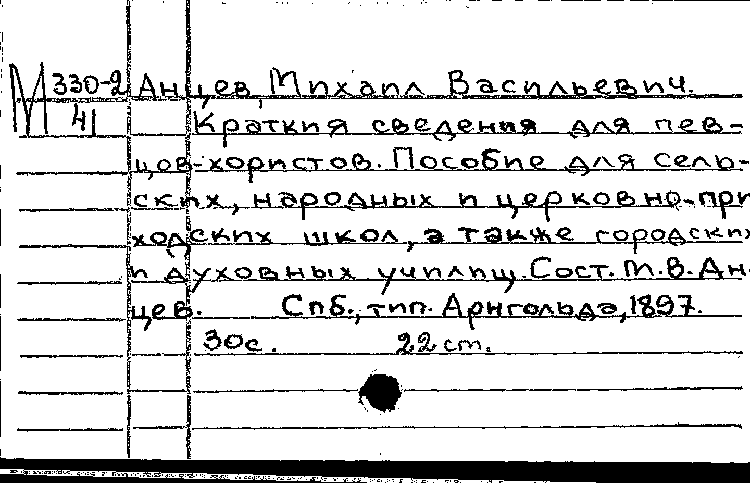 М 330-2 Анцев, Михаил Васильевич.
41 Краткия сведения для пев-
цов-хористов. Пособие для сель-
ских, народных и церковно-при
ходских школ, а также городских
и духовных училищ. Сост. М.В. Ан-
цев. Спб., тип. Арнгольда, 1897.
30с. 22 cm.